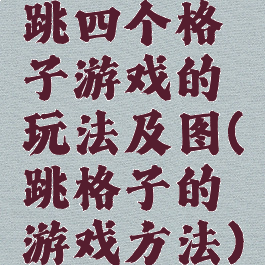 跳四个格
子游戏的
玩法及图(
跳格子的
游戏方法)